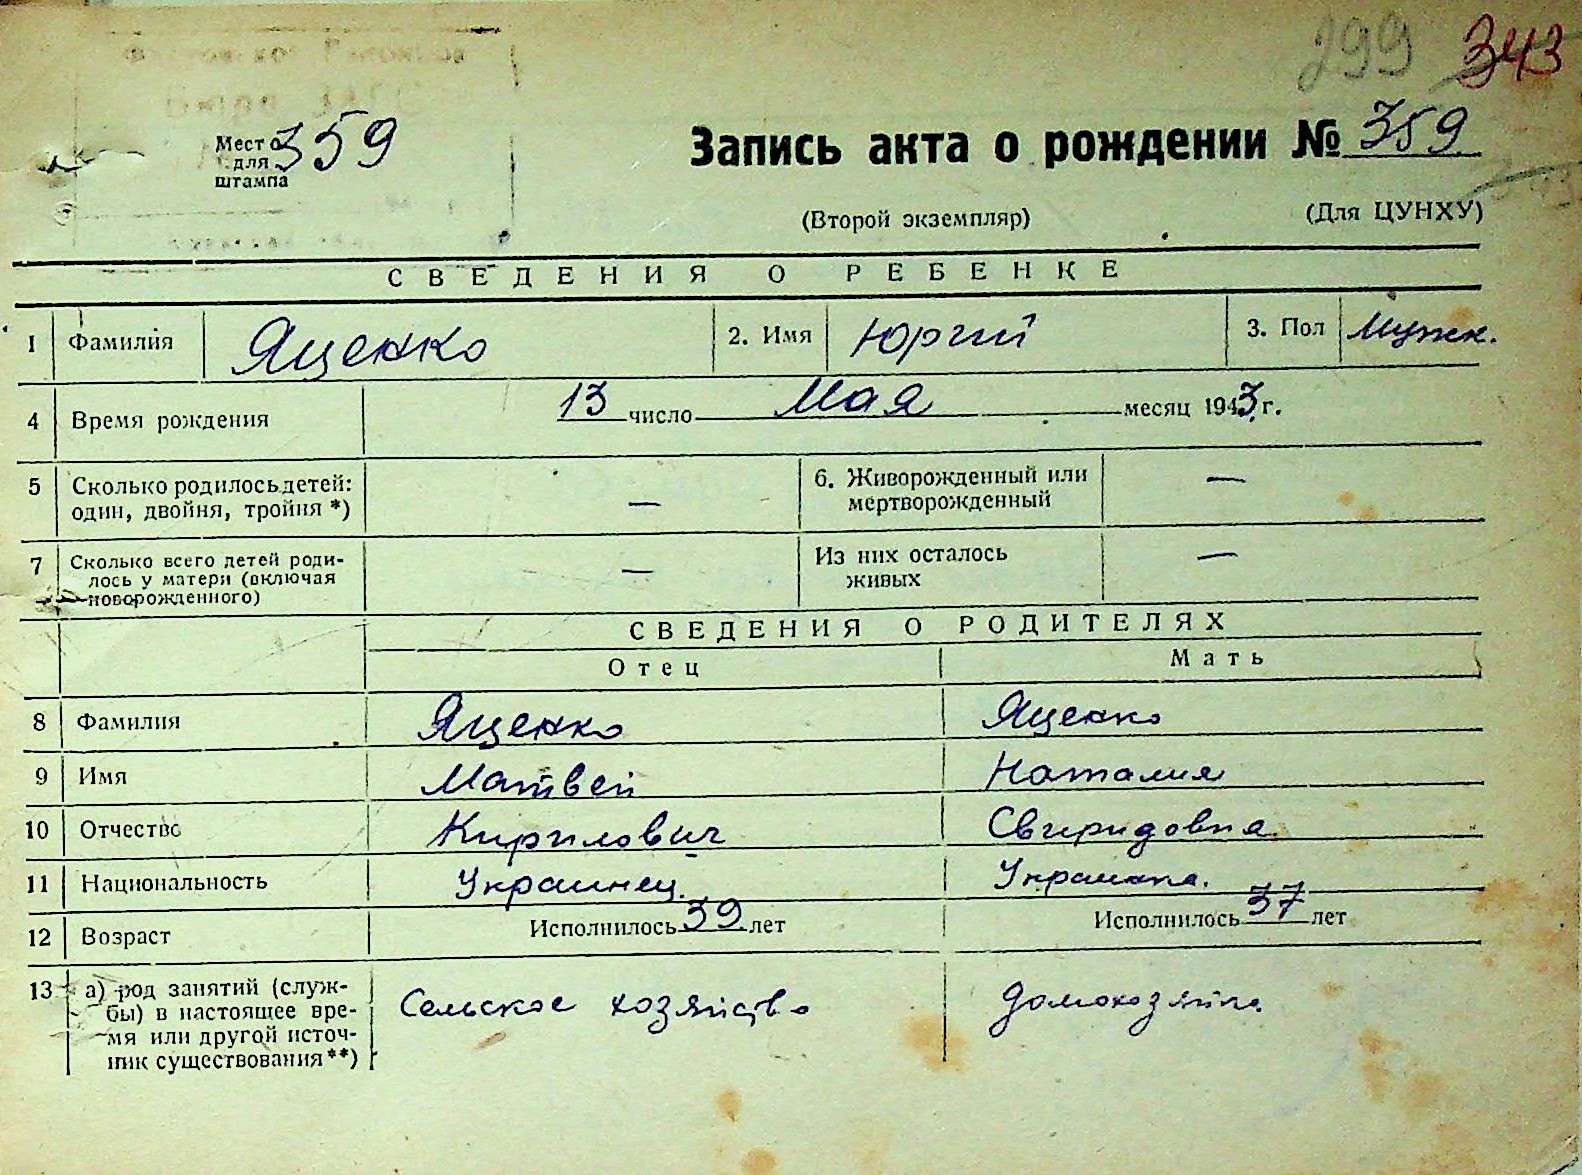 299 343
Место для штампа 359
Запись акта о рождении № 359
(Второй экземпляр) (Для ЦУНХУ)
СВЕДЕНИЯ О РЕБЕНКЕ
1 Фамилия Яценко 2. Имя Юргий 3. Пол Мужк.
4 Время рождения 13 число Мая месяц 1943 г.
5 Сколько родилось детей: один, двойня, тройня *) — 6. Живорожденный или мертворожденный —
7 Сколько всего детей роди-
лось у матери (включая
новорожденного) — Из них осталось живых —
СВЕДЕНИЯ О РОДИТЕЛЯХ
Отец Мать
8 Фамилия Яценко Яценко
9 Имя Матвей Наталия
10 Отчество Кирилович Свиридовна
11 Национальность Украинец. Украинка.
12 Возраст Исполнилось 39 лет Исполнилось 37 лет
13 а) род занятий (служ-
бы) в настоящее вре-
мя или другой источ-
ник существования **) Сельское хозяйство домохозяйка.